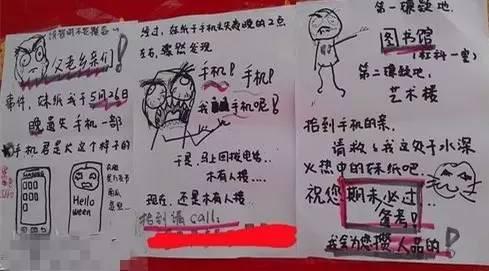 父老乡亲们!
事件,妹纸我于5月26日
晚遗失手机一部
手机君是长这个样子的
Hello
ween
经过,妹纸于手机丢失当晚的2点
左右,骤然发现
手机!手机!
我 手机呢!
于是,马上回拨电话…
木有人接…
现在,还是木有人接…
拾到请call:
第一嫌疑地.
图书馆
第二嫌疑地.
艺术楼
拾到手机的亲,
请救救我这处于水深
火热中的妹纸吧.
祝您期末必过
备考!
我会为您攒人品的!